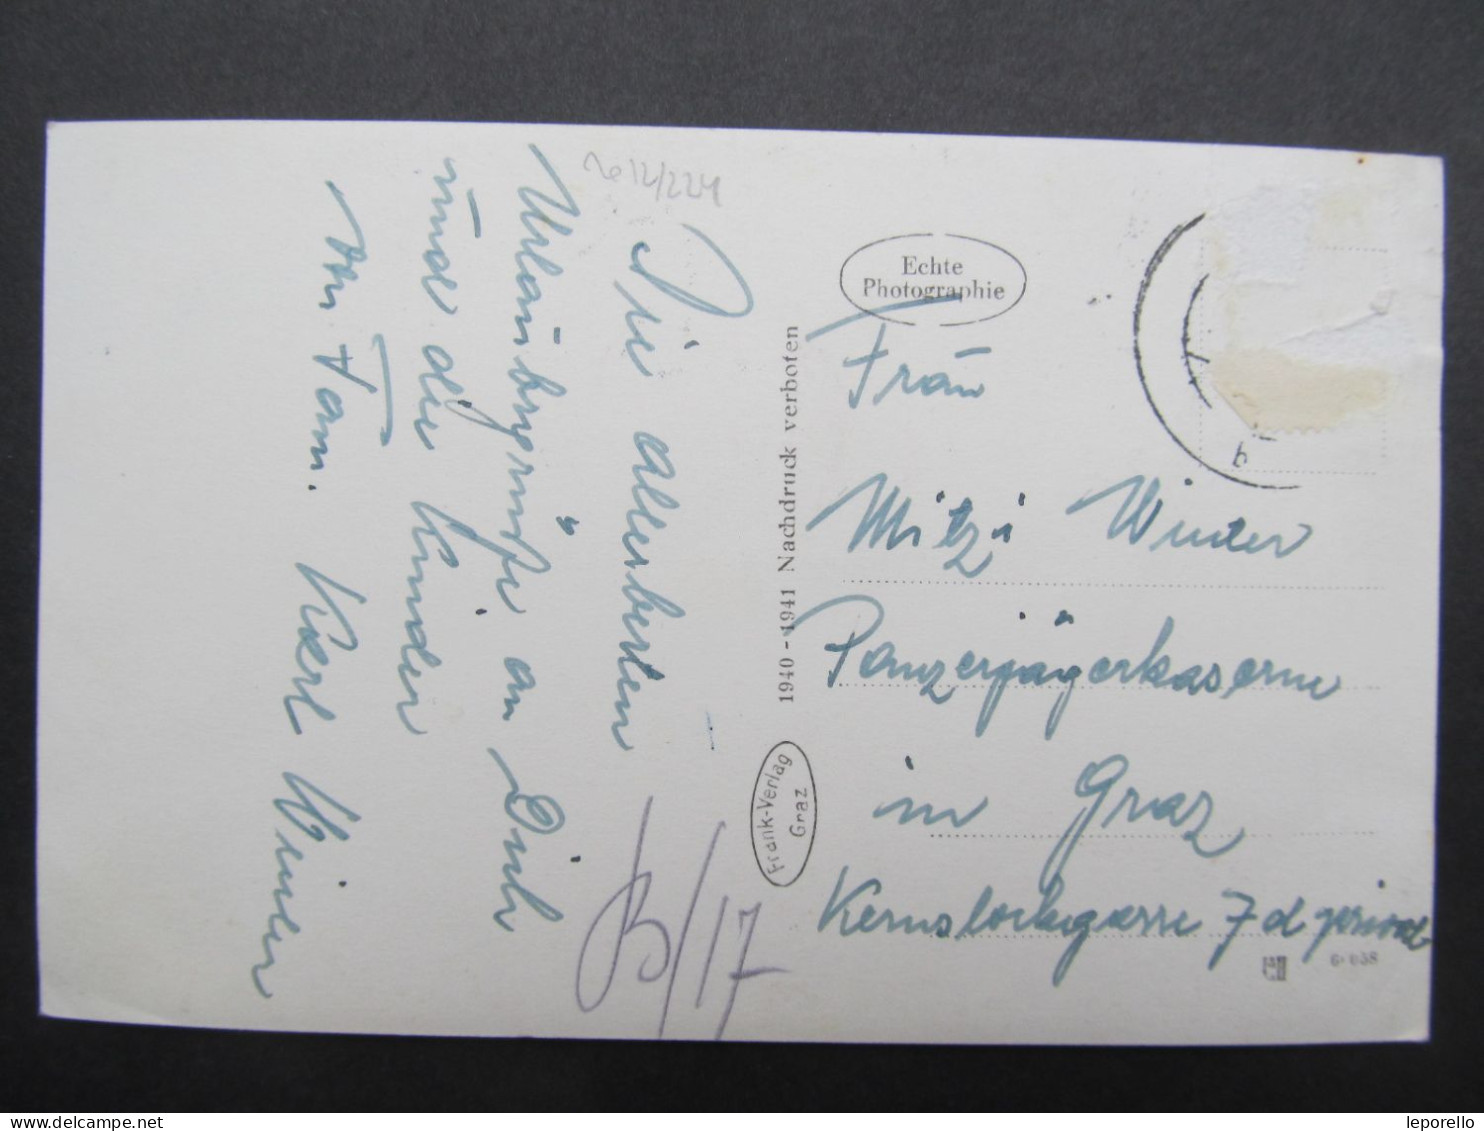 2612/224
Die allerbesten
Urlaubsgrüße an Dich
und die Kinder
von Fam. Karl Winter
B/17
Echte
Photographie
1940-1941 Nachdruck verboten
Frank-Verlag
Graz
b
Frau
Mitzi Winter
Panzerjägerkaserne
in Graz
Kernstockgasse 7d privat
delcampe.net
leporello